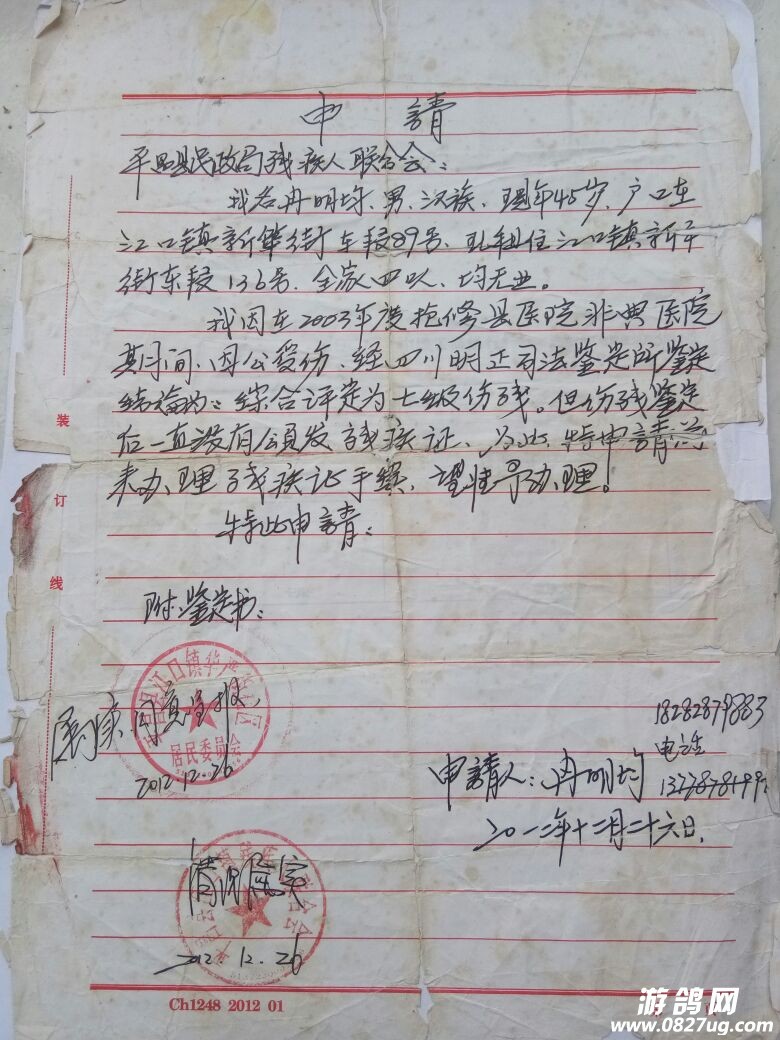 申 請
平昌县民政局残疾人联合会：
我名冉明均、男、汉族、现年45岁、户口在
江口镇新华街东段89号、现租住江口镇新平
街东段136号、全家四口、均无业。
我因在2003年度抢修县医院非典医院
期间、因公受伤、经四川明正司法鉴定所鉴定
结論为：综合评定为七级伤残。但伤残鉴定
后一直没有領发残疾证、为此、特申請
来办理残疾证手续、望准予办理！
特此申請：
附：鉴定书：
江口镇华
居民委员会
2012.12.26
18282879883
电话
申請人：冉明均
二〇一二年十二月二十六日.
情况属实
2012.12.26
装
订
线
Ch1248 2012 01
游鸽网
www.0827ug.com